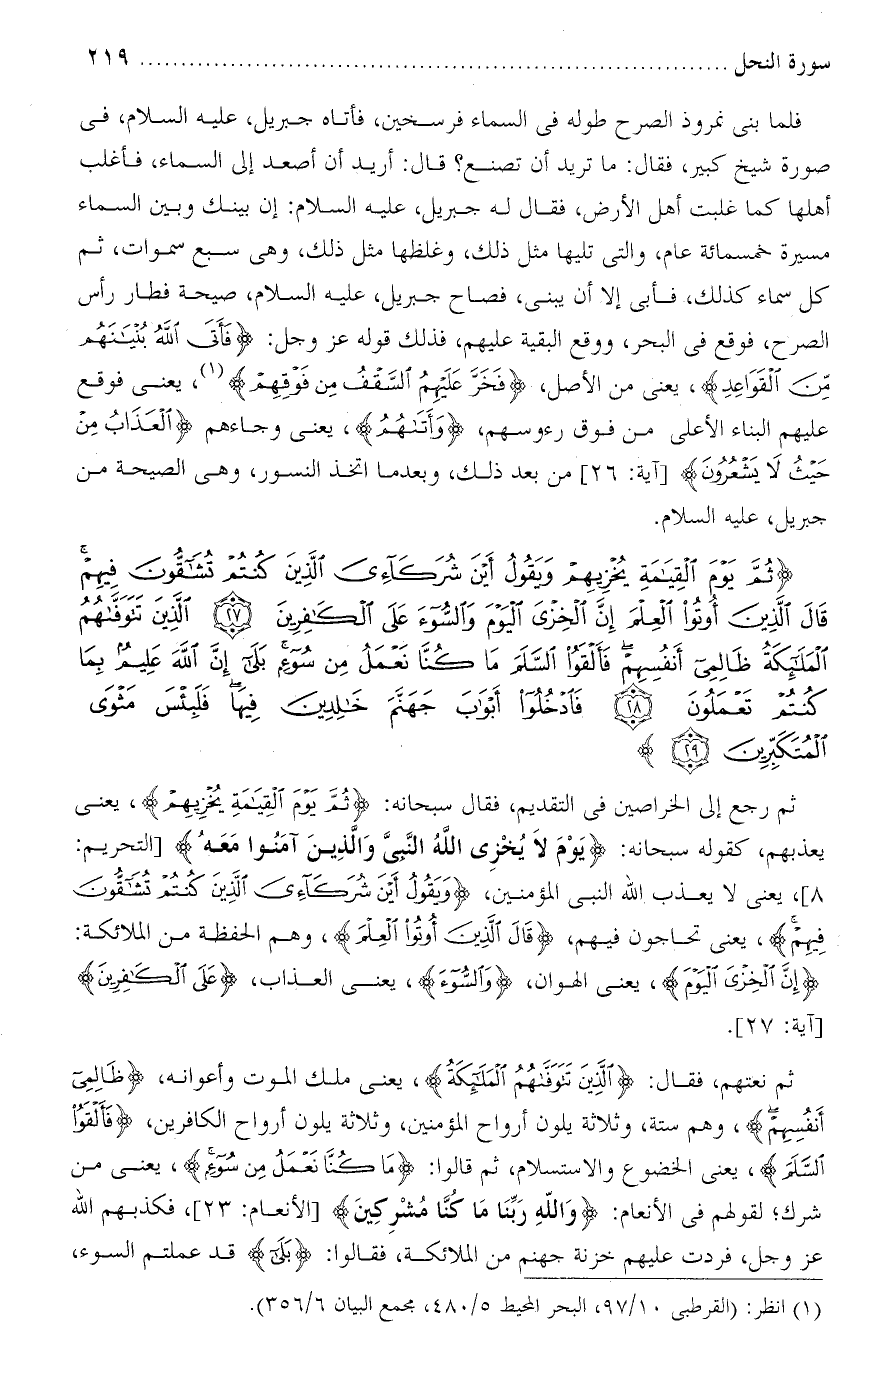 سورة النحل ........................................................................ ٢١٩
فلما بنى نمروذ الصرح طوله فى السماء فرسخين، فأتاه جبريل، عليه السلام، فى
صورة شيخ كبير، فقال: ما تريد أن تصنع؟ قال: أريد أن أصعد إلى السماء، فأغلب
أهلها كما غلبت أهل الأرض، فقال له جبريل، عليه السلام: إن بينك وبين السماء
مسيرة خمسمائة عام، والتى تليها مثل ذلك، وغلظها مثل ذلك، وهى سبع سموات، ثم
كل سماء كذلك، فأبى إلا أن يبنى، فصاح جبريل، عليه السلام، صيحة فطار رأس
الصرح، فوقع فى البحر، ووقع البقية عليهم، فذلك قوله عز وجل: ﴿فَأَتَى ٱللَّهُ بُنْيَـٰنَهُم
مِّنَ ٱلْقَوَاعِدِ﴾، يعنى من الأصل، ﴿فَخَرَّ عَلَيْهِمُ ٱلسَّقْفُ مِن فَوْقِهِمْ﴾(١)، يعنى فوقع
عليهم البناء الأعلى من فوق رءوسهم، ﴿وَأَتَىٰهُمُ﴾، يعنى وجاءهم ﴿ٱلْعَذَابُ مِنْ
حَيْثُ لَا يَشْعُرُونَ﴾ [آية: ٢٦] من بعد ذلك، وبعدما اتخذ النسور، وهى الصيحة من
جبريل، عليه السلام.
﴿ثُمَّ يَوْمَ ٱلْقِيَـٰمَةِ يُخْزِيهِمْ وَيَقُولُ أَيْنَ شُرَكَآءِىَ ٱلَّذِينَ كُنتُمْ تُشَـٰٓقُّونَ فِيهِمْ ۚ
قَالَ ٱلَّذِينَ أُوتُوا۟ ٱلْعِلْمَ إِنَّ ٱلْخِزْىَ ٱلْيَوْمَ وَٱلسُّوٓءَ عَلَى ٱلْكَـٰفِرِينَ ﴿٢٧﴾ ٱلَّذِينَ تَتَوَفَّىٰهُمُ
ٱلْمَلَـٰٓئِكَةُ ظَالِمِىٓ أَنفُسِهِمْ ۖ فَأَلْقَوُا۟ ٱلسَّلَمَ مَا كُنَّا نَعْمَلُ مِن سُوٓءٍۭ ۚ بَلَىٰٓ إِنَّ ٱللَّهَ عَلِيمٌۢ بِمَا
كُنتُمْ تَعْمَلُونَ ﴿٢٨﴾ فَٱدْخُلُوٓا۟ أَبْوَٰبَ جَهَنَّمَ خَـٰلِدِينَ فِيهَا ۖ فَلَبِئْسَ مَثْوَى
ٱلْمُتَكَبِّرِينَ ﴿٢٩﴾﴾
ثم رجع إلى الخراصين فى التقديم، فقال سبحانه: ﴿ثُمَّ يَوْمَ ٱلْقِيَـٰمَةِ يُخْزِيهِمْ﴾، يعنى
يعذبهم، كقوله سبحانه: ﴿يَوْمَ لَا يُخْزِى اللَّهُ النَّبِىَّ وَالَّذِينَ آمَنُوا مَعَهُ﴾ [التحريم:
٨]، يعنى لا يعذب الله النبى المؤمنين، ﴿وَيَقُولُ أَيْنَ شُرَكَآءِىَ ٱلَّذِينَ كُنتُمْ تُشَـٰٓقُّونَ
فِيهِمْ ۚ﴾، يعنى تحاجون فيهم، ﴿قَالَ ٱلَّذِينَ أُوتُوا۟ ٱلْعِلْمَ﴾، وهم الحفظة من الملائكة:
﴿إِنَّ ٱلْخِزْىَ ٱلْيَوْمَ﴾، يعنى الهوان، ﴿وَٱلسُّوٓءَ﴾، يعنى العذاب، ﴿عَلَى ٱلْكَـٰفِرِينَ﴾
[آية: ٢٧].
ثم نعتهم، فقال: ﴿ٱلَّذِينَ تَتَوَفَّىٰهُمُ ٱلْمَلَـٰٓئِكَةُ﴾، يعنى ملك الموت وأعوانه، ﴿ظَالِمِىٓ
أَنفُسِهِمْ ۖ﴾، وهم ستة، وثلاثة يلون أرواح المؤمنين، وثلاثة يلون أرواح الكافرين، ﴿فَأَلْقَوُا۟
ٱلسَّلَمَ﴾، يعنى الخضوع والاستسلام، ثم قالوا: ﴿مَا كُنَّا نَعْمَلُ مِن سُوٓءٍۭ ۚ﴾، يعنى من
شرك؛ لقولهم فى الأنعام: ﴿وَاللَّهِ رَبِّنَا مَا كُنَّا مُشْرِكِينَ﴾ [الأنعام: ٢٣]، فكذبهم الله
عز وجل، فردت عليهم خزنة جهنم من الملائكة، فقالوا: ﴿بَلَىٰٓ﴾ قد عملتم السوء،
(١) انظر: (القرطبى ٩٧/١٠، البحر المحيط ٤٨٠/٥، مجمع البيان ٣٥٦/٦).